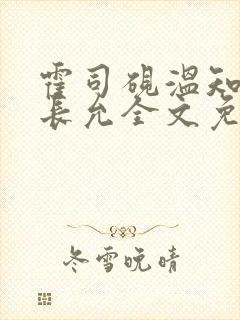 霍司砚温知
长允全文免
冬雪晚晴